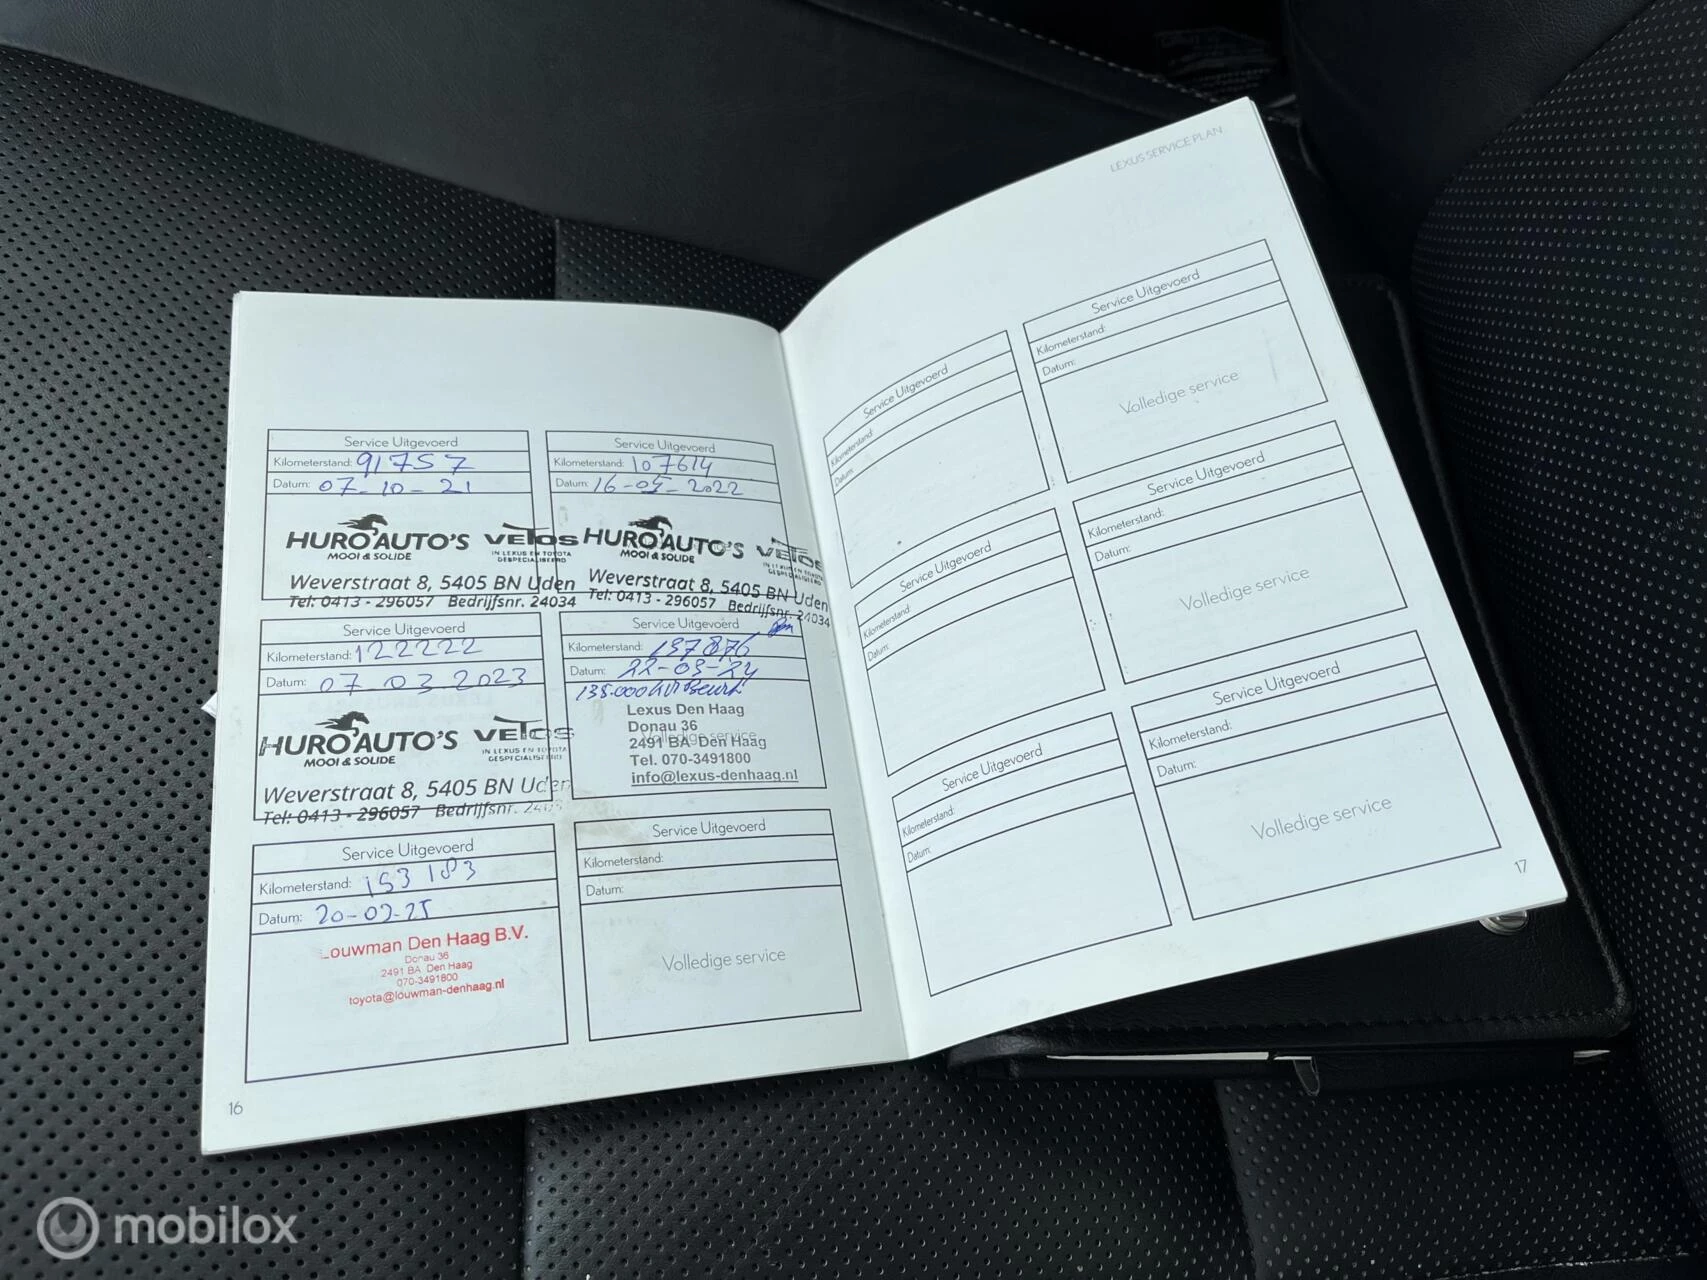 Service Uitgevoerd
Kilometerstand: 91757
Datum: 07-10-21
HURO AUTO'S
MOOI & SOLIDE
VETOS
IN LEXUS EN TOYOTA
GESPECIALISEERD
Weverstraat 8, 5405 BN Uden
Tel: 0413 - 296057 Bedrijfsnr. 24034
Service Uitgevoerd
Kilometerstand: 107614
Datum: 16-05-2022
HURO AUTO'S
MOOI & SOLIDE
VETOS
IN LEXUS EN TOYOTA
GESPECIALISEERD
Weverstraat 8, 5405 BN Uden
Tel: 0413 - 296057 Bedrijfsnr. 24034
Service Uitgevoerd
Kilometerstand: 122222
Datum: 07-03 2023
HURO AUTO'S
MOOI & SOLIDE
VETOS
IN LEXUS EN TOYOTA
GESPECIALISEERD
Weverstraat 8, 5405 BN Uden
Tel: 0413 - 296057 Bedrijfsnr.
Service Uitgevoerd
Kilometerstand: 137876
Datum: 22-03-24
Lexus Den Haag
Donau 36
Volledige service
2491 BA Den Haag
Tel. 070-3491800
info@lexus-denhaag.nl
Service Uitgevoerd
Kilometerstand: 153183
Datum: 20-02-25
Louwman Den Haag B.V.
Donau 36
2491 BA Den Haag
070-3491800
toyota@louwman-denhaag.nl
Service Uitgevoerd
Kilometerstand:
Datum:
Volledige service
16
LEXUS SERVICE PLAN
Service Uitgevoerd
Kilometerstand:
Datum:
Service Uitgevoerd
Kilometerstand:
Datum:
Volledige service
Service Uitgevoerd
Kilometerstand:
Datum:
Service Uitgevoerd
Kilometerstand:
Datum:
Volledige service
Service Uitgevoerd
Kilometerstand:
Datum:
Service Uitgevoerd
Kilometerstand:
Datum:
Volledige service
17
mobilox